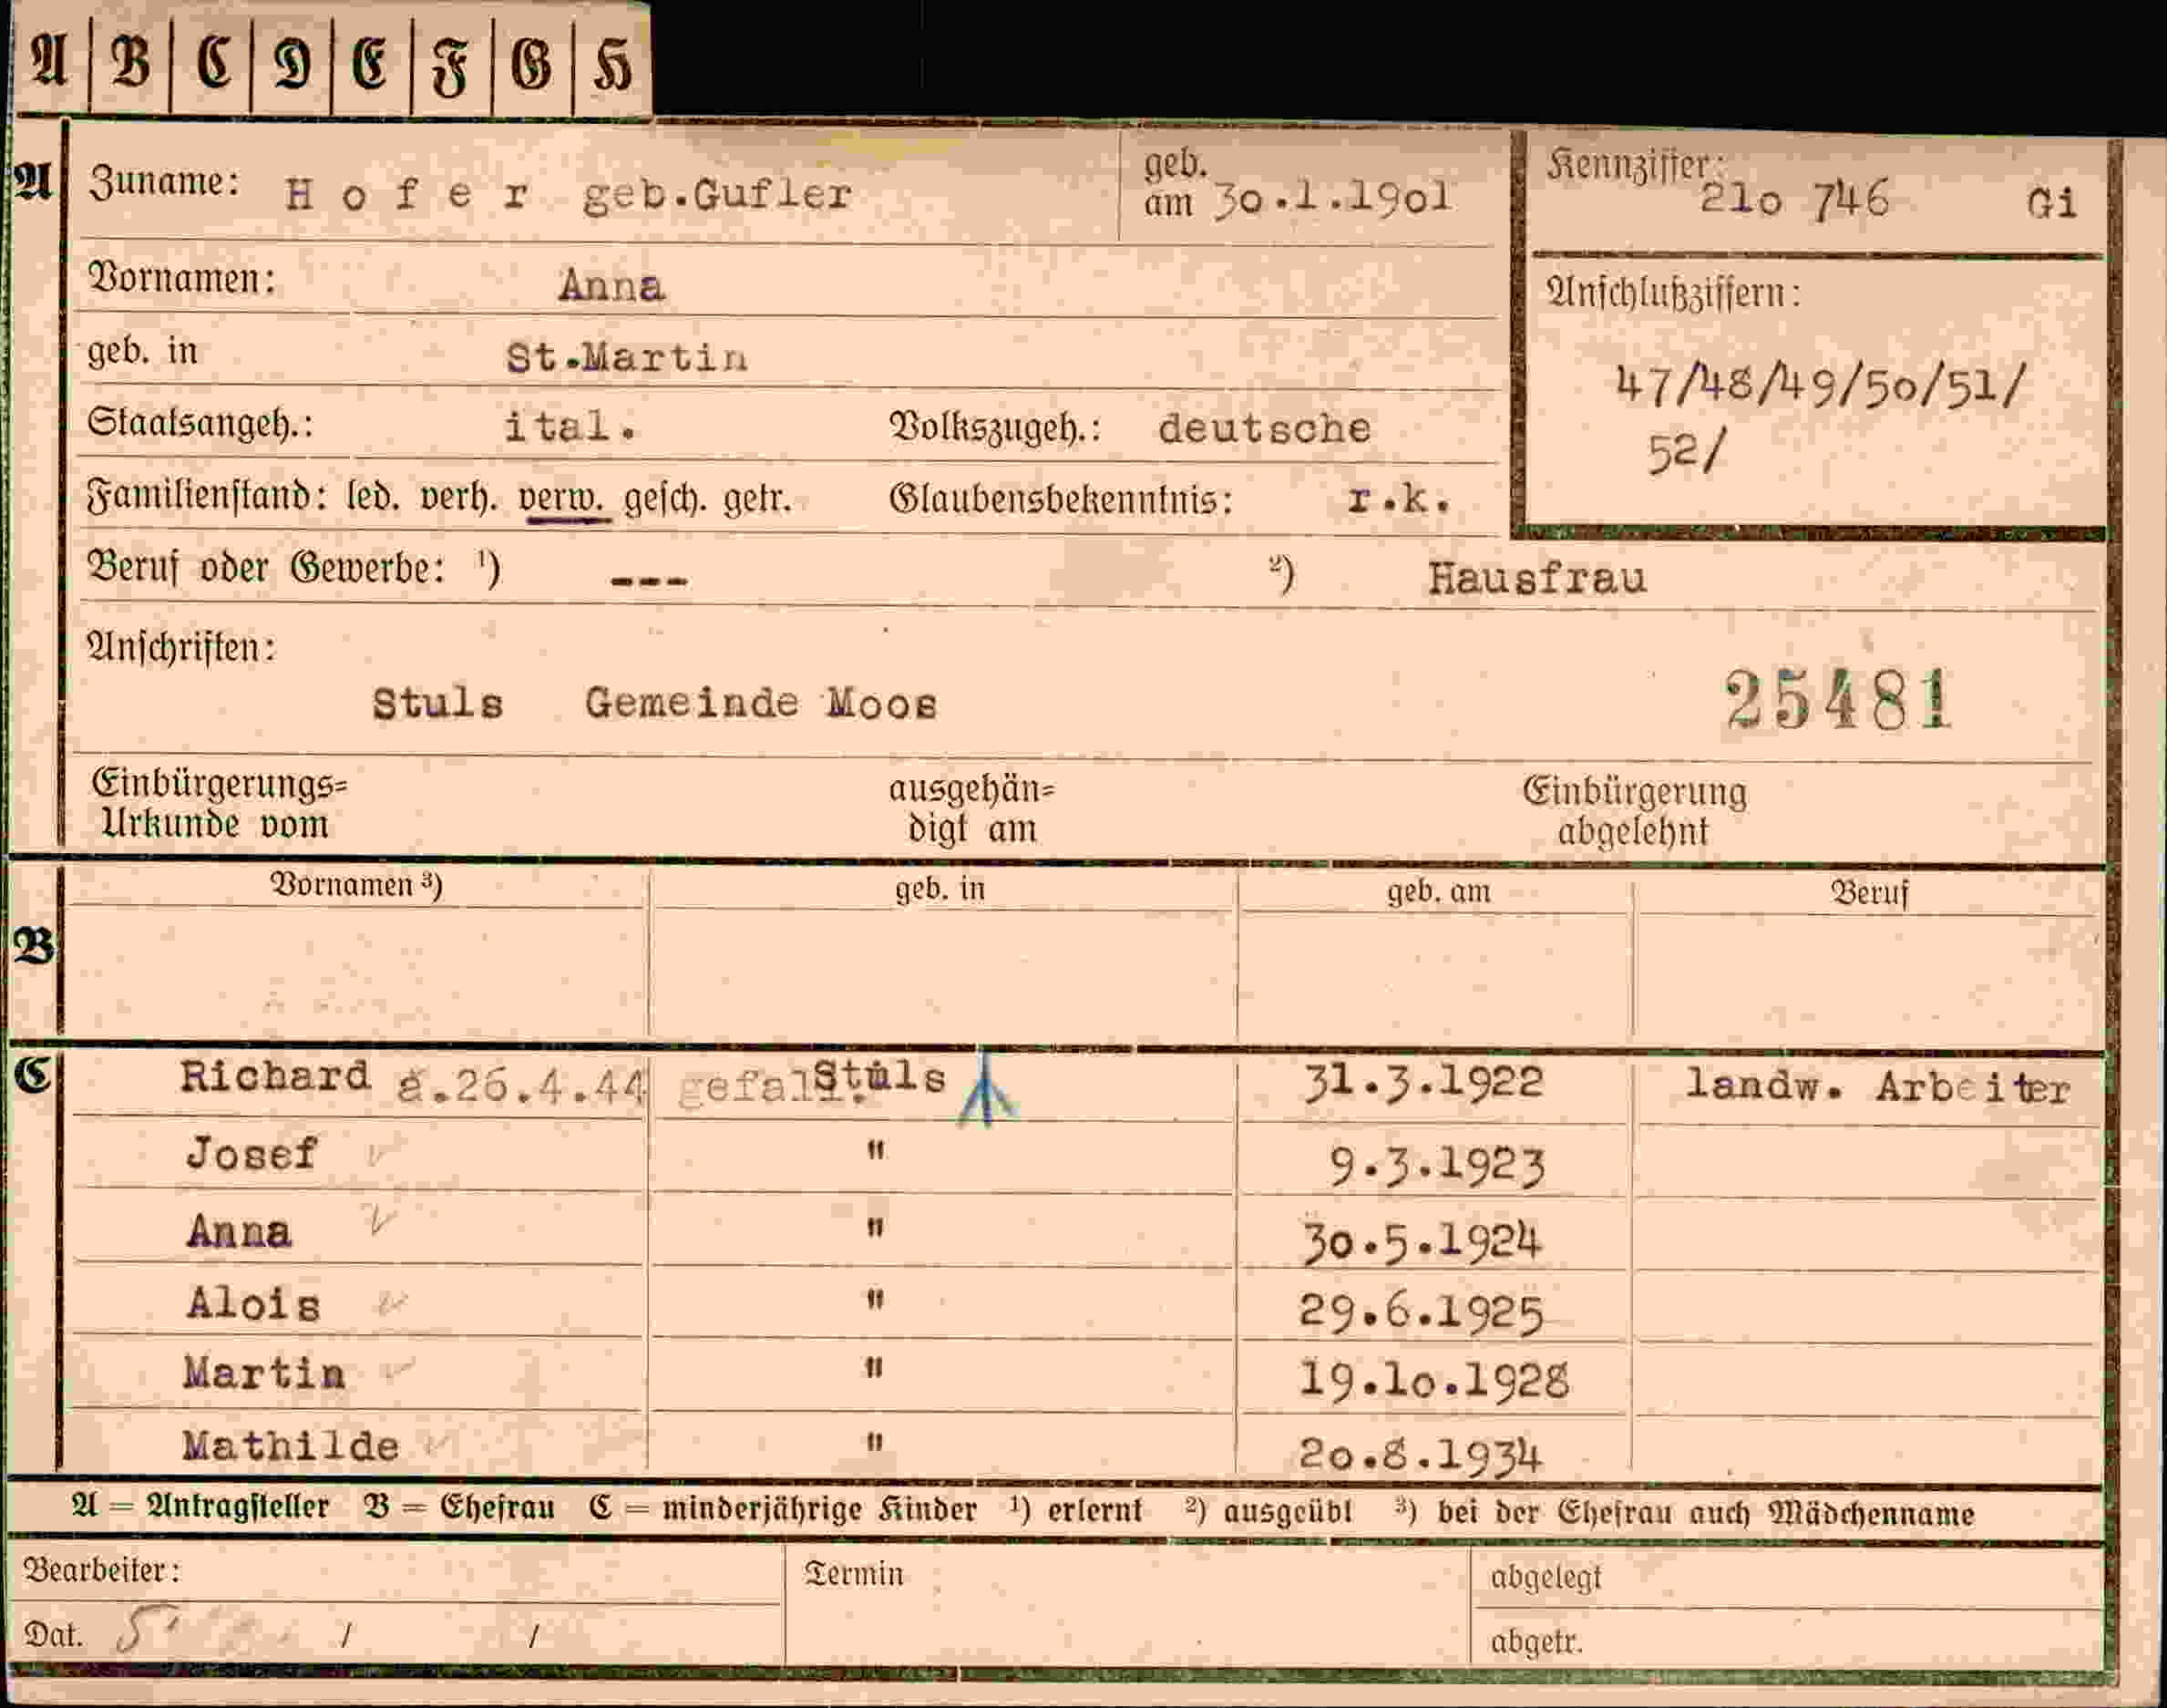 A B C D E F G H
A Zuname: H o f e r geb.Gufler geb. am 30.1.19o1 Kennziffer: 21o 746 Gi
Vornamen: Anna
Anschlußziffern:
geb. in St.Martin
47/48/49/50/51/
52/
Staatsangeh.: ital. Volkszugeh.: deutsche
Familienstand: led. verh. verw. gesch. getr. Glaubensbekenntnis: r.k.
Beruf oder Gewerbe: ¹) --- ²) Hausfrau
Anschriften:
Stuls Gemeinde Moos 25481
Einbürgerungs= ausgehän= Einbürgerung
Urkunde vom digt am abgelehnt
Vornamen ³) geb. in geb. am Beruf
B
C Richard a.26.4.44 gefal. Stuls 31.3.1922 landw. Arbeiter
Josef " 9.3.1923
Anna " 30.5.1924
Alois " 29.6.1925
Martin " 19.1o.1928
Mathilde " 2o.8.1934
A = Antragsteller B = Ehefrau C = minderjährige Kinder ¹) erlernt ²) ausgeübt ³) bei der Ehefrau auch Mädchenname
Bearbeiter: Termin abgelegt
Dat. 5 / / abgetr.